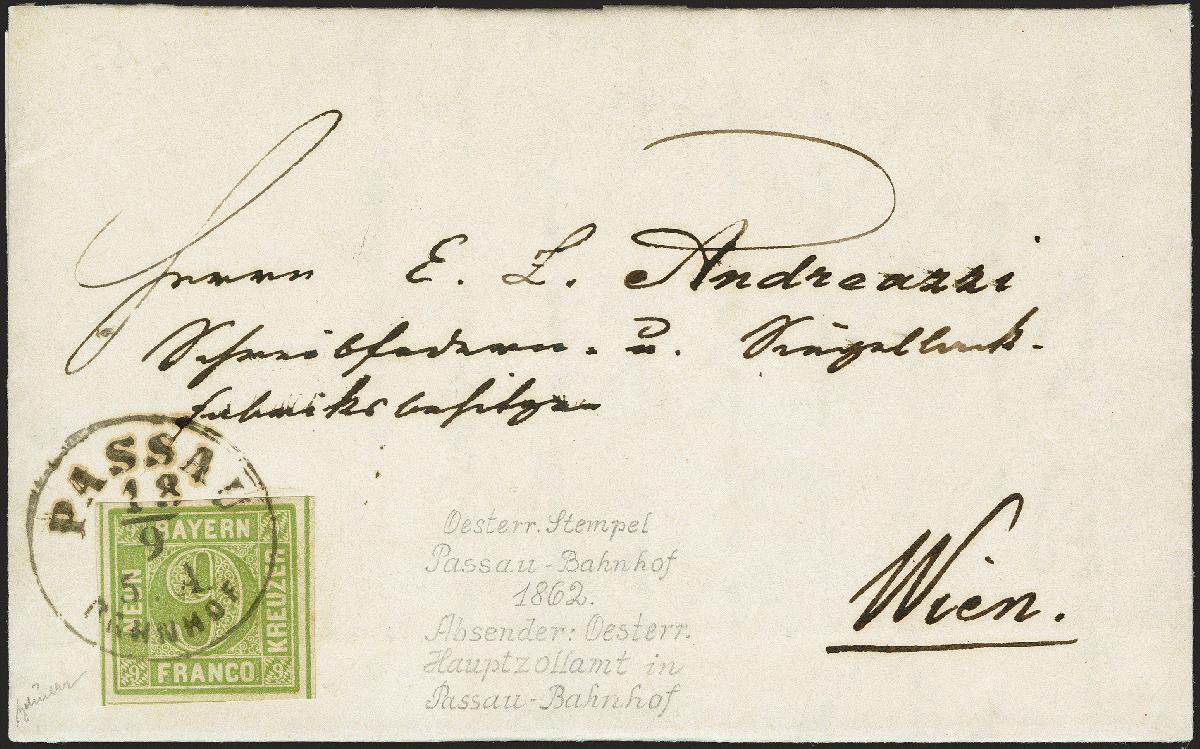 Herrn E. L. Andreazzi
Schreibfedern- u. Siegellack-
fabriksbesitzer
Wien.
PASSAU
18
9
5. A
BAHNHOF
BAYERN
NEUN
9
KREUZER
FRANCO
Oesterr. Stempel
Passau-Bahnhof
1862.
Absender: Oesterr.
Hauptzollamt in
Passau-Bahnhof